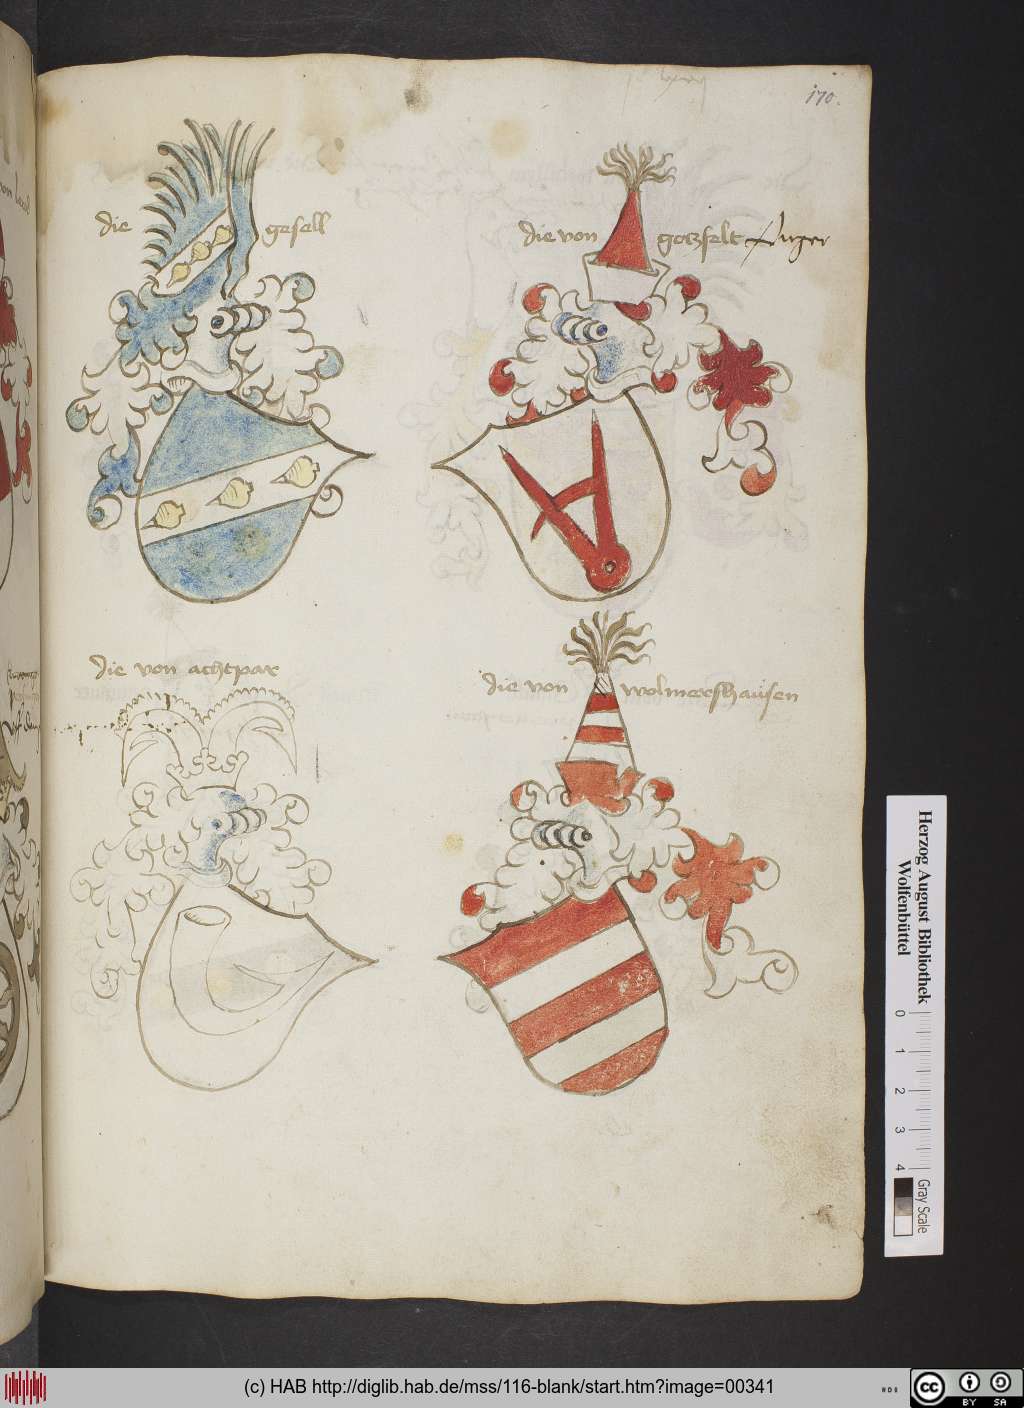 170.
die gesell
die von gotzfelt
die von achtpar
die von wolmershausen
Herzog August Bibliothek
Wolfenbüttel
0 1 2 3 4
Gray Scale
(c) HAB http://diglib.hab.de/mss/116-blank/start.htm?image=00341
cc BY SA